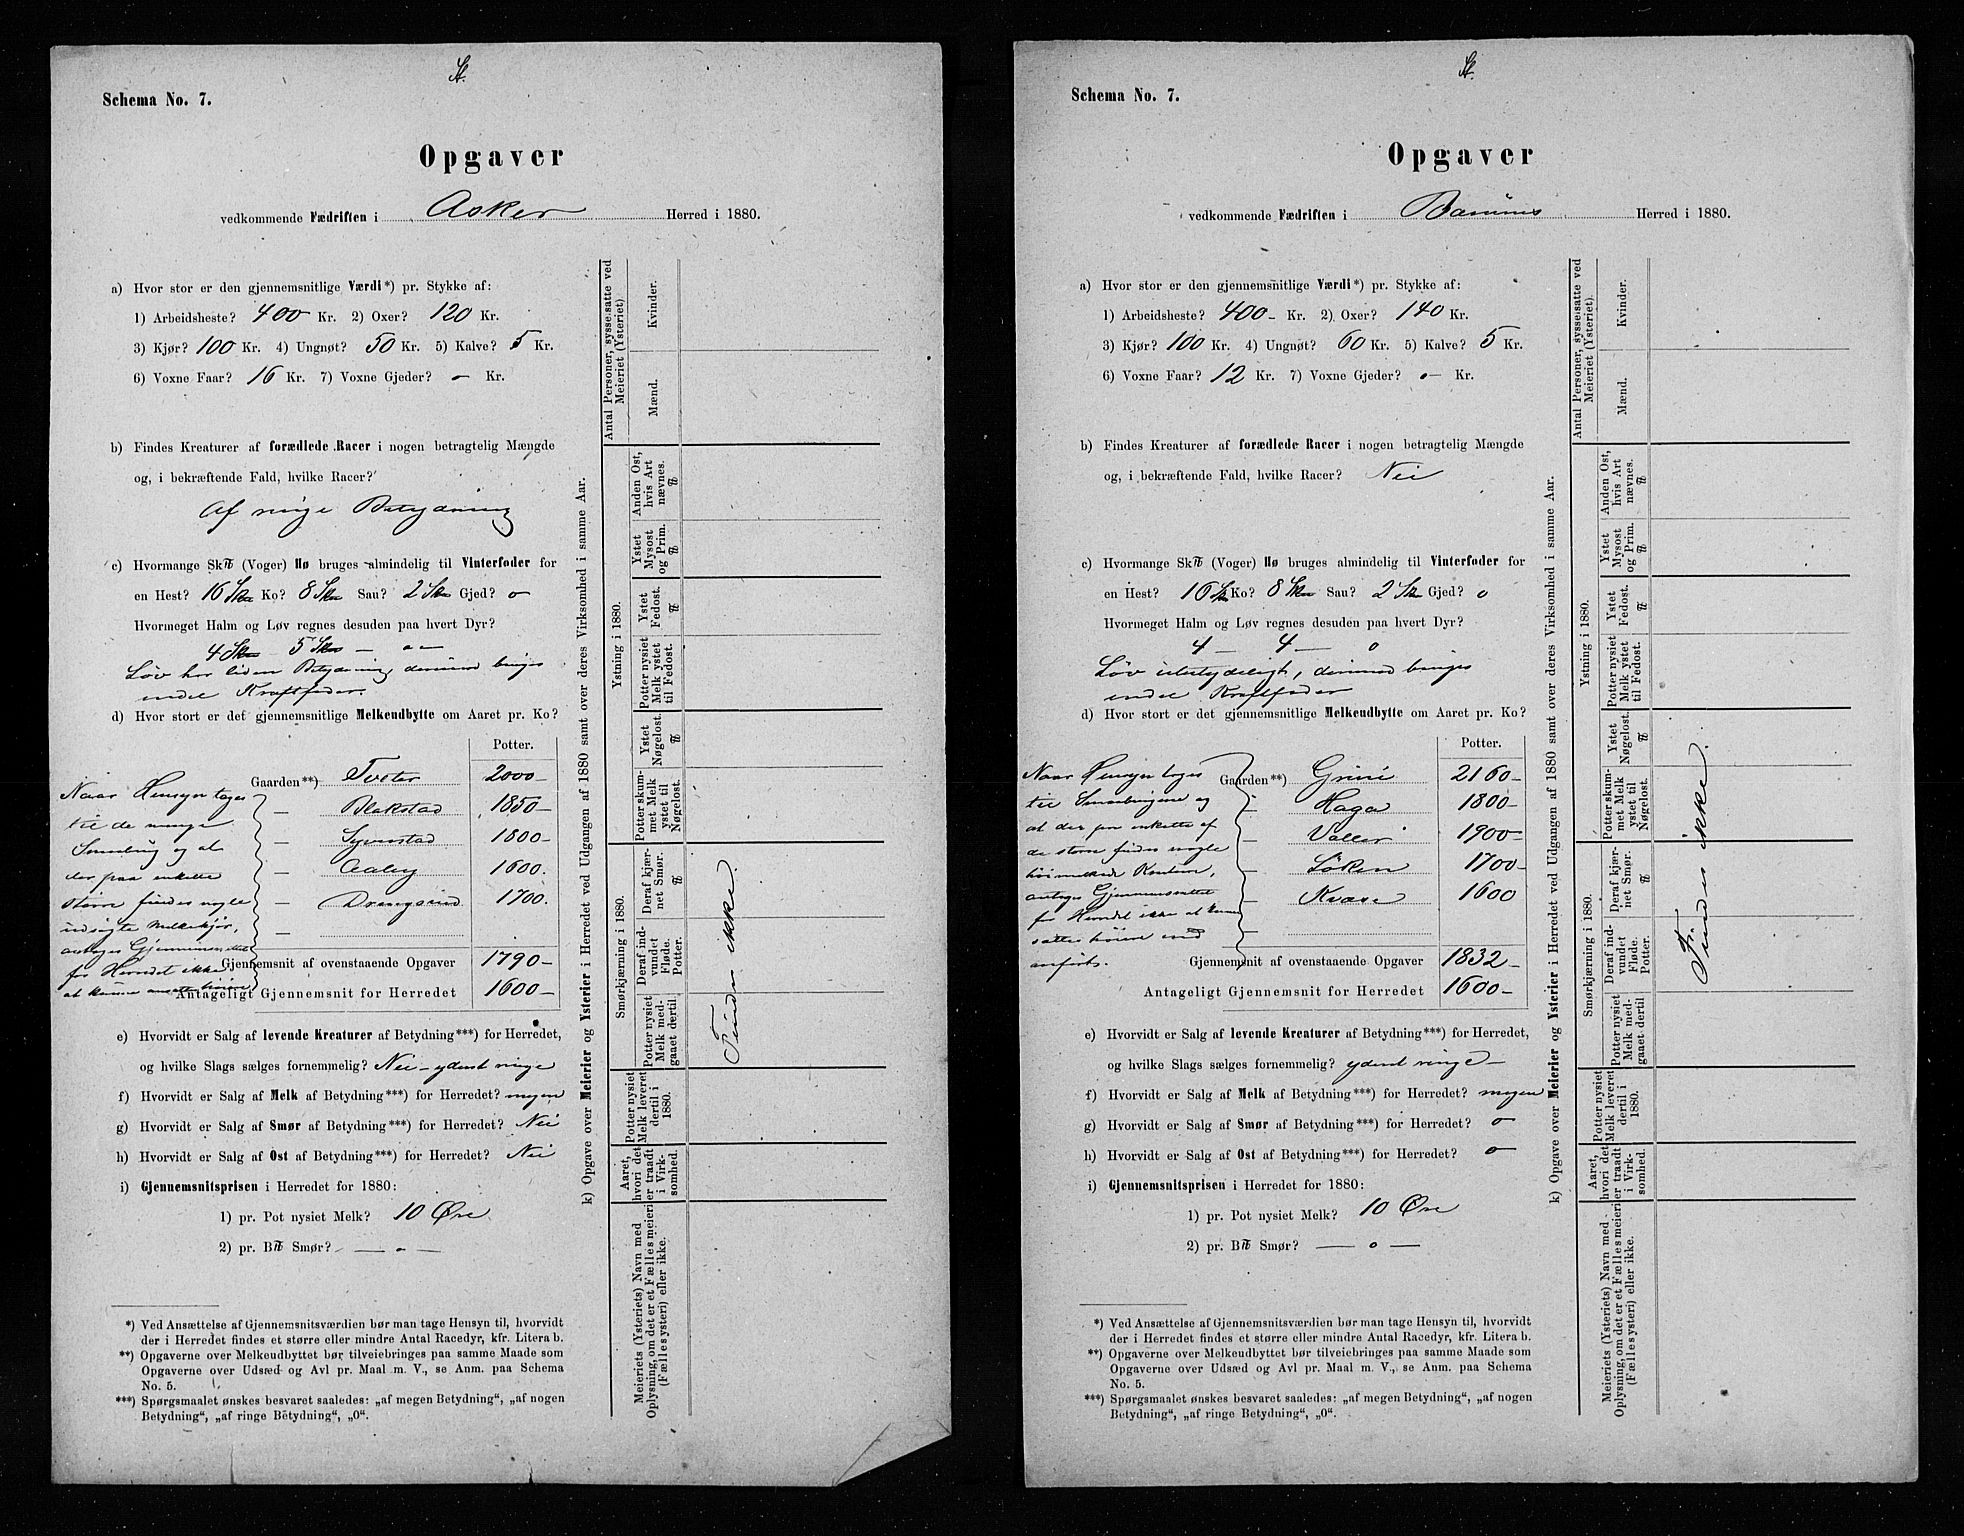 St.
Schema No. 7.
Opgaver
vedkommende Fædriften i Asker Herred i 1880.
a) Hvor stor er den gjennemsnitlige Værdi*) pr. Stykke af:
1) Arbeidsheste? 400 Kr. 2) Oxer? 120 Kr.
3) Kjør? 100 Kr. 4) Ungnøt? 50 Kr. 5) Kalve? 5 Kr.
6) Voxne Faar? 16 Kr. 7) Voxne Gjeder? o— Kr.
b) Findes Kreaturer af forædlede Racer i nogen betragtelig Mængde
og, i bekræftende Fald, hvilke Racer?
Af ringe Betydning
c) Hvormange Sk℔ (Voger) Hø bruges almindelig til Vinterfoder for
en Hest? 16 Sk℔ Ko? 8 Sk℔ Sau? 2 Sk℔ Gjed? o
Hvormeget Halm og Løv regnes desuden paa hvert Dyr?
4 Sk℔ 5 Sk℔ — o—
Løv har liden Betydning, derimod bruges
endel Kraftfoder.
d) Hvor stort er det gjennemsnitlige Melkeudbytte om Aaret pr. Ko?
Potter.
Gaarden**) Tveter 2000—
— Blakstad 1850—
— Syverstad 1800—
— Aaby 1600.
— Drengsrud 1700.
—
Gjennemsnit af ovenstaaende Opgaver 1790—
Antageligt Gjennemsnit for Herredet 1600—
Naar Hensyn tages
til de mange
Smaabrug og at
der paa enkelte
større findes nogle
udsøgte Melkekjør,
antages Gjennemsnittet
for Herredet ikke
at kunne ansættes høiere
e) Hvorvidt er Salg af levende Kreaturer af Betydning***) for Herredet,
og hvilke Slags sælges fornemmelig? Nei – yderst ringe
f) Hvorvidt er Salg af Melk af Betydning***) for Herredet? megen
g) Hvorvidt er Salg af Smør af Betydning***) for Herredet? Nei
h) Hvorvidt er Salg af Ost af Betydning***) for Herredet? Nei
i) Gjennemsnitsprisen i Herredet for 1880:
1) pr. Pot nysiet Melk? 10 Øre
2) pr. B℔ Smør? — o —
*) Ved Ansættelse af Gjennemsnitsværdien bør man tage Hensyn til, hvorvidt
der i Herredet findes et større eller mindre Antal Racedyr, kfr. Litera b.
**) Opgaverne over Melkeudbyttet bør tilveiebringes paa samme Maade som
Opgaverne over Udsæd og Avl pr. Maal m. V., se Anm. paa Schema
No. 5.
***) Spørgsmaalet ønskes besvaret saaledes: „af megen Betydning“, „af nogen
Betydning“, „af ringe Betydning“, „0“.
k) Opgave over Meierier og Ysterier i Herredet ved Udgangen af 1880 samt over deres Virksomhed i samme Aar.
Meieriets (Ysteriets) Navn med
Oplysning, om det er et Fællesmeieri
(Fællesysteri) eller ikke.
Aaret,
hvori det
er traadt
i Virk-
somhed.
Potter nysiet
Melk leveret
dertil i
1880.
Smørkjærning i 1880.
Potter nysiet
Melk med-
gaaet dertil.
Deraf ind-
vundet
Fløde.
Potter.
Deraf kjær-
net Smør.
℔
Ystning i 1880.
Potter skum-
met Melk
ystet til
Nøgelost.
Ystet
Nøgelost.
℔
Potter nysiet
Melk ystet
til Fedost.
Ystet
Fedost.
℔
Ystet
Mysost
og Prim.
℔
Anden Ost,
hvis Art
nævnes.
℔
Antal Personer, sysselsatte ved
Meieriet (Ysteriet).
Mænd.
Kvinder.
Findes ikke.
St.
Schema No. 7.
Opgaver
vedkommende Fædriften i Bærums Herred i 1880.
a) Hvor stor er den gjennemsnitlige Værdi*) pr. Stykke af:
1) Arbeidsheste? 400– Kr. 2) Oxer? 140 Kr.
3) Kjør? 100 Kr. 4) Ungnøt? 60 Kr. 5) Kalve? 5 Kr.
6) Voxne Faar? 12 Kr. 7) Voxne Gjeder? o— Kr.
b) Findes Kreaturer af forædlede Racer i nogen betragtelig Mængde
og, i bekræftende Fald, hvilke Racer? Nei
c) Hvormange Sk℔ (Voger) Hø bruges almindelig til Vinterfoder for
en Hest? 16 Sk℔ Ko? 8 Sk℔ Sau? 2 Sk℔ Gjed? o
Hvormeget Halm og Løv regnes desuden paa hvert Dyr?
4 — 4 — o
Løv ubetydeligt, derimod bruges
endel Kraftfoder
d) Hvor stort er det gjennemsnitlige Melkeudbytte om Aaret pr. Ko?
Potter.
Gaarden**) Grini 2160—
— Haga 1800—
— Valler 1900—
— Løken 1700—
— Kvære 1600
—
Gjennemsnit af ovenstaaende Opgaver 1832—
Antageligt Gjennemsnit for Herredet 1600—
Naar Hensyn tages
til Smaabrugene og
at der paa enkelte af
de større findes nogle
antages Gjennemsnittet
for Herredet ikke at kunne
sættes høiere end
anført.
e) Hvorvidt er Salg af levende Kreaturer af Betydning***) for Herredet,
og hvilke Slags sælges fornemmelig? yderst ringe —
f) Hvorvidt er Salg af Melk af Betydning***) for Herredet? megen
g) Hvorvidt er Salg af Smør af Betydning***) for Herredet? o
h) Hvorvidt er Salg af Ost af Betydning***) for Herredet? o
i) Gjennemsnitsprisen i Herredet for 1880:
1) pr. Pot nysiet Melk? 10 Øre
2) pr. B℔ Smør? — o —
*) Ved Ansættelse af Gjennemsnitsværdien bør man tage Hensyn til, hvorvidt
der i Herredet findes et større eller mindre Antal Racedyr, kfr. Litera b.
**) Opgaverne over Melkeudbyttet bør tilveiebringes paa samme Maade som
Opgaverne over Udsæd og Avl pr. Maal m. V., se Anm. paa Schema
No. 5.
***) Spørgsmaalet ønskes besvaret saaledes: „af megen Betydning“, „af nogen
Betydning“, „af ringe Betydning“, „0“.
k) Opgave over Meierier og Ysterier i Herredet ved Udgangen af 1880 samt over deres Virksomhed i samme Aar.
Meieriets (Ysteriets) Navn med
Oplysning, om det er et Fællesmeieri
(Fællesysteri) eller ikke.
Aaret,
hvori det
er traadt
i Virk-
somhed.
Potter nysiet
Melk leveret
dertil i
1880.
Smørkjærning i 1880.
Potter nysiet
Melk med-
gaaet dertil
Deraf ind-
vundet
Fløde.
Potter.
Deraf kjær-
net Smør.
℔
Ystning i 1880.
Potter skum-
met Melk
ystet til
Nøgelost.
Ystet
Nøgelost.
℔
Potter nysiet
Melk ystet
til Fedost.
Ystet
Fedost.
℔
Ystet
Mysost
og Prim.
℔
Anden Ost,
hvis Art
nævnes.
℔
Antal Personer, sysselsatte ved
Meieriet (Ysteriet).
Mænd.
Kvinder.
Findes ikke.